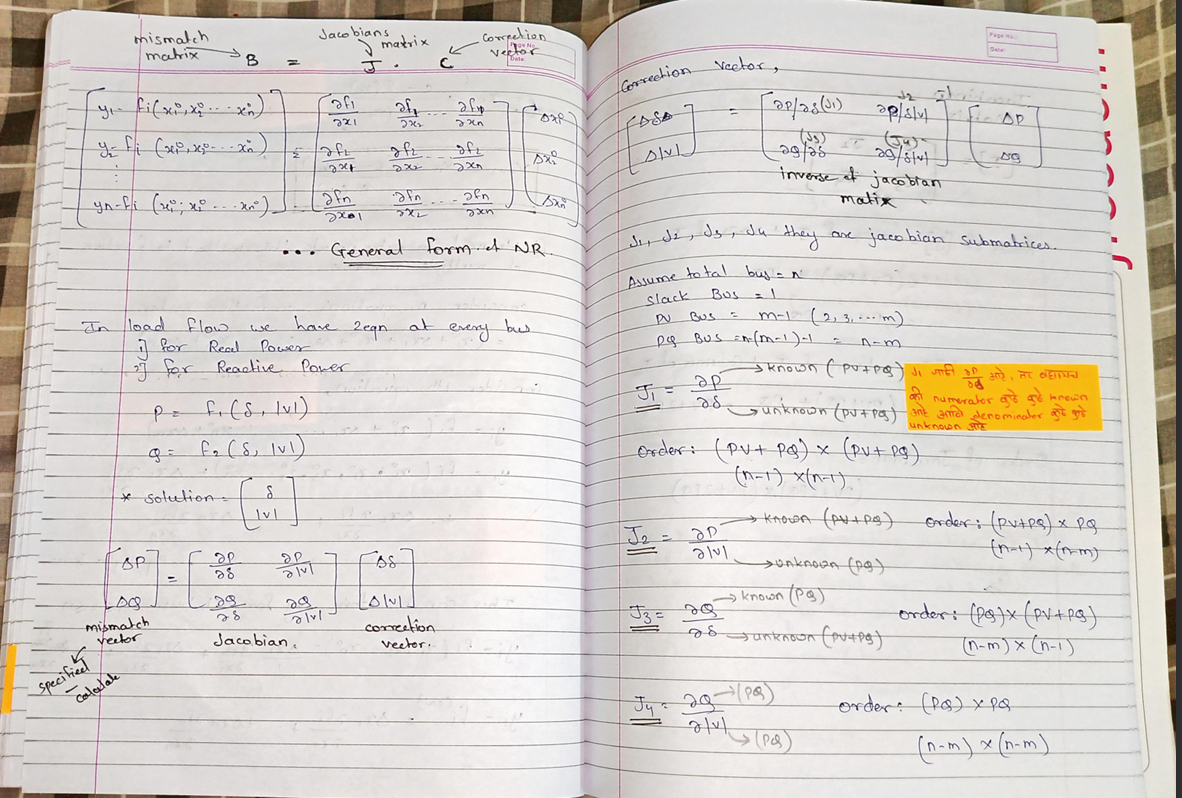 mismatch matrix → B = Jacobians matrix J . correction vector C
Page No.
Date:
[ y₁- fi(x₁⁰, x₂⁰ ... xn⁰) ] = [ ∂f₁/∂x₁ ∂f₁/∂x₂ ... ∂f₁/∂xn ] [ Δx₁⁰ ]
[ y₂- fi (x₁⁰, x₂⁰ ... xn⁰) ] [ ∂f₂/∂x₁ ∂f₂/∂x₂ ... ∂f₂/∂xn ] [ Δx₂⁰ ]
⋮
[ yn-fi (x₁⁰, x₂⁰ ... xn⁰) ] [ ∂fn/∂x1 ∂fn/∂x₂ ... ∂fn/∂xn ] [ Δxn⁰ ]
... General form of NR.
In load flow we have 2eqn at every bus
1] for Real Power
2] for Reactive Power
P = f₁ (δ, |v|)
Q = f₂ (δ, |v|)
* solution = [ δ |v| ]
[ ΔP ] = [ ∂P/∂δ ∂P/∂|v| ] [ Δδ ]
[ ΔQ ] [ ∂Q/∂δ ∂Q/∂|v| ] [ Δ|v| ]
mismatch vector Jacobian. correction vector.
specified - calculate
Page No.:
Date:
Correction vector,
[ Δδ ] = [ ∂P/∂δ (J₁) ∂P/δ|v| J₂ ]⁻¹ [ ΔP ]
[ Δ|v| ] [ (J₃) ∂Q/∂δ (J₄) ∂Q/δ|v| ] [ ΔQ ]
inverse of jacobian
matix
J₁, J₂, J₃, J₄ they are jacobian submatrices.
Assume total bus = n
Slack Bus = 1
PV Bus = m-1 (2, 3, ... m)
PQ Bus = n-(m-1)-1 = n-m
J₁ = ∂P/∂δ → known (PV+PQ) → unknown (PV+PQ)
J₁ साठी ∂P/∂δ आहे, तर बघायचं
की numerator कुठे कुठे known
आहे आणि denominator कुठे कुठे
unknown आहे
Order: (PV + PQ) × (PV + PQ)
(n-1) × (n-1)
J₂ = ∂P/∂|v| → known (PV+PQ) → unknown (PQ) order: (PV+PQ) × PQ
(n-1) × (n-m)
J₃ = ∂Q/∂δ → known (PQ) → unknown (PV+PQ) order: (PQ) × (PV+PQ)
(n-m) × (n-1)
J₄ = ∂Q/∂|v| → (PQ) → (PQ) order: (PQ) × PQ
(n-m) × (n-m)